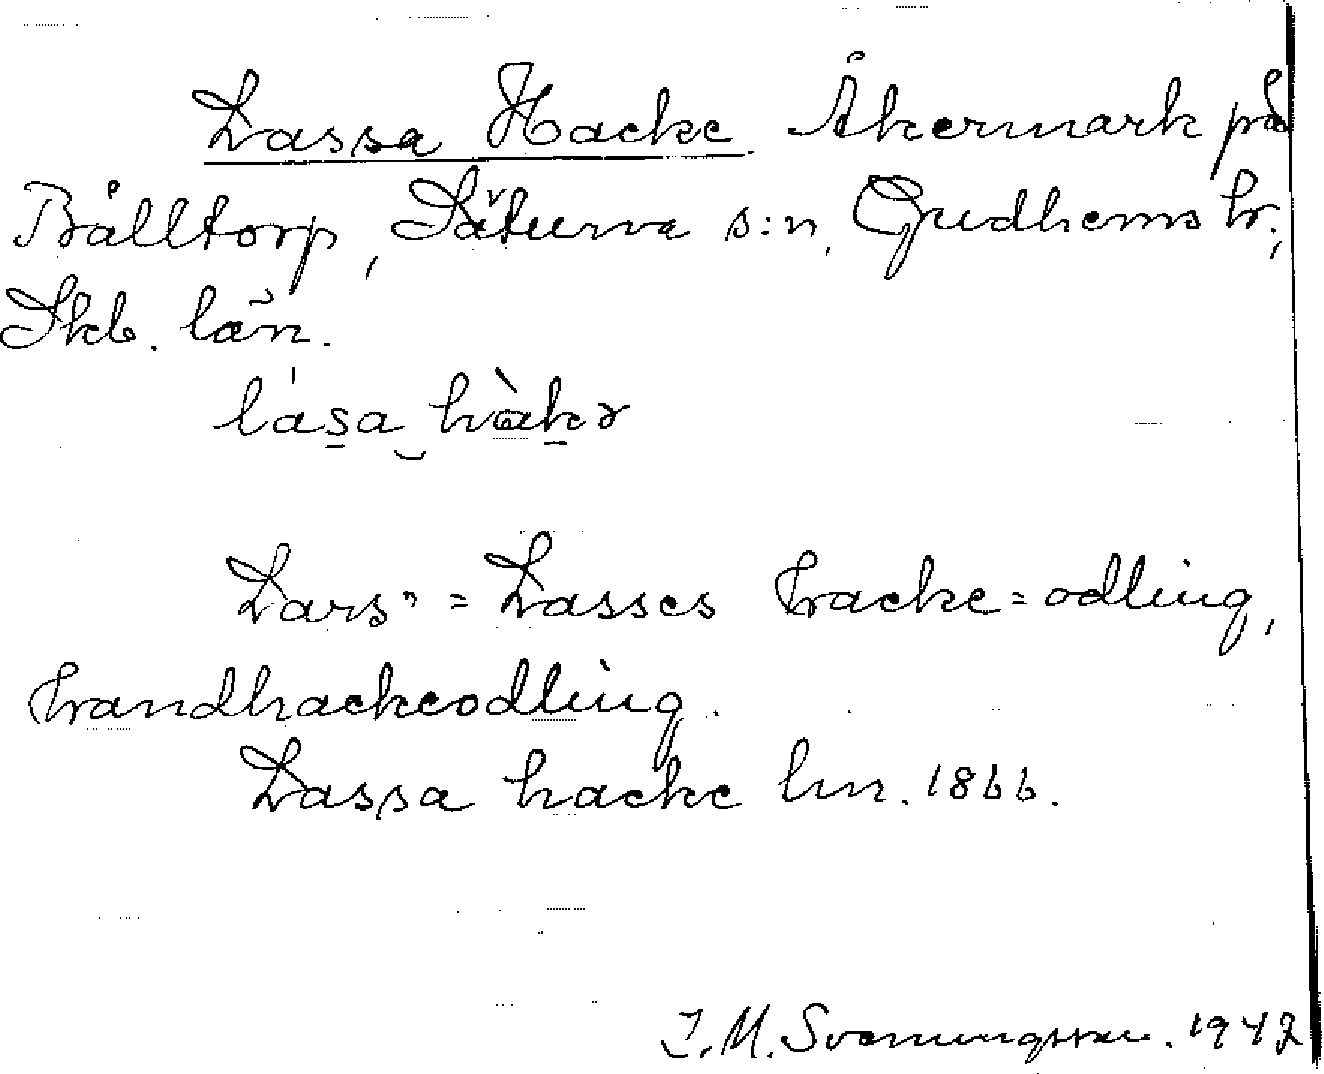 Lassa Hacke. Åkermark på
Bålltorp, Sätuna s:n, Gudhems hr.,
Skb. län.
lása hàkə
Lars' = Lasses hacke=odling,
handhackeodling.
Lassa hacke lm. 1866.
J. M. Svenungsson. 1942